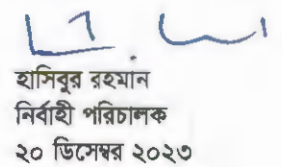 হাসিবুর রহমান
নির্বাহী পরিচালক
২০ ডিসেম্বর ২০২৩